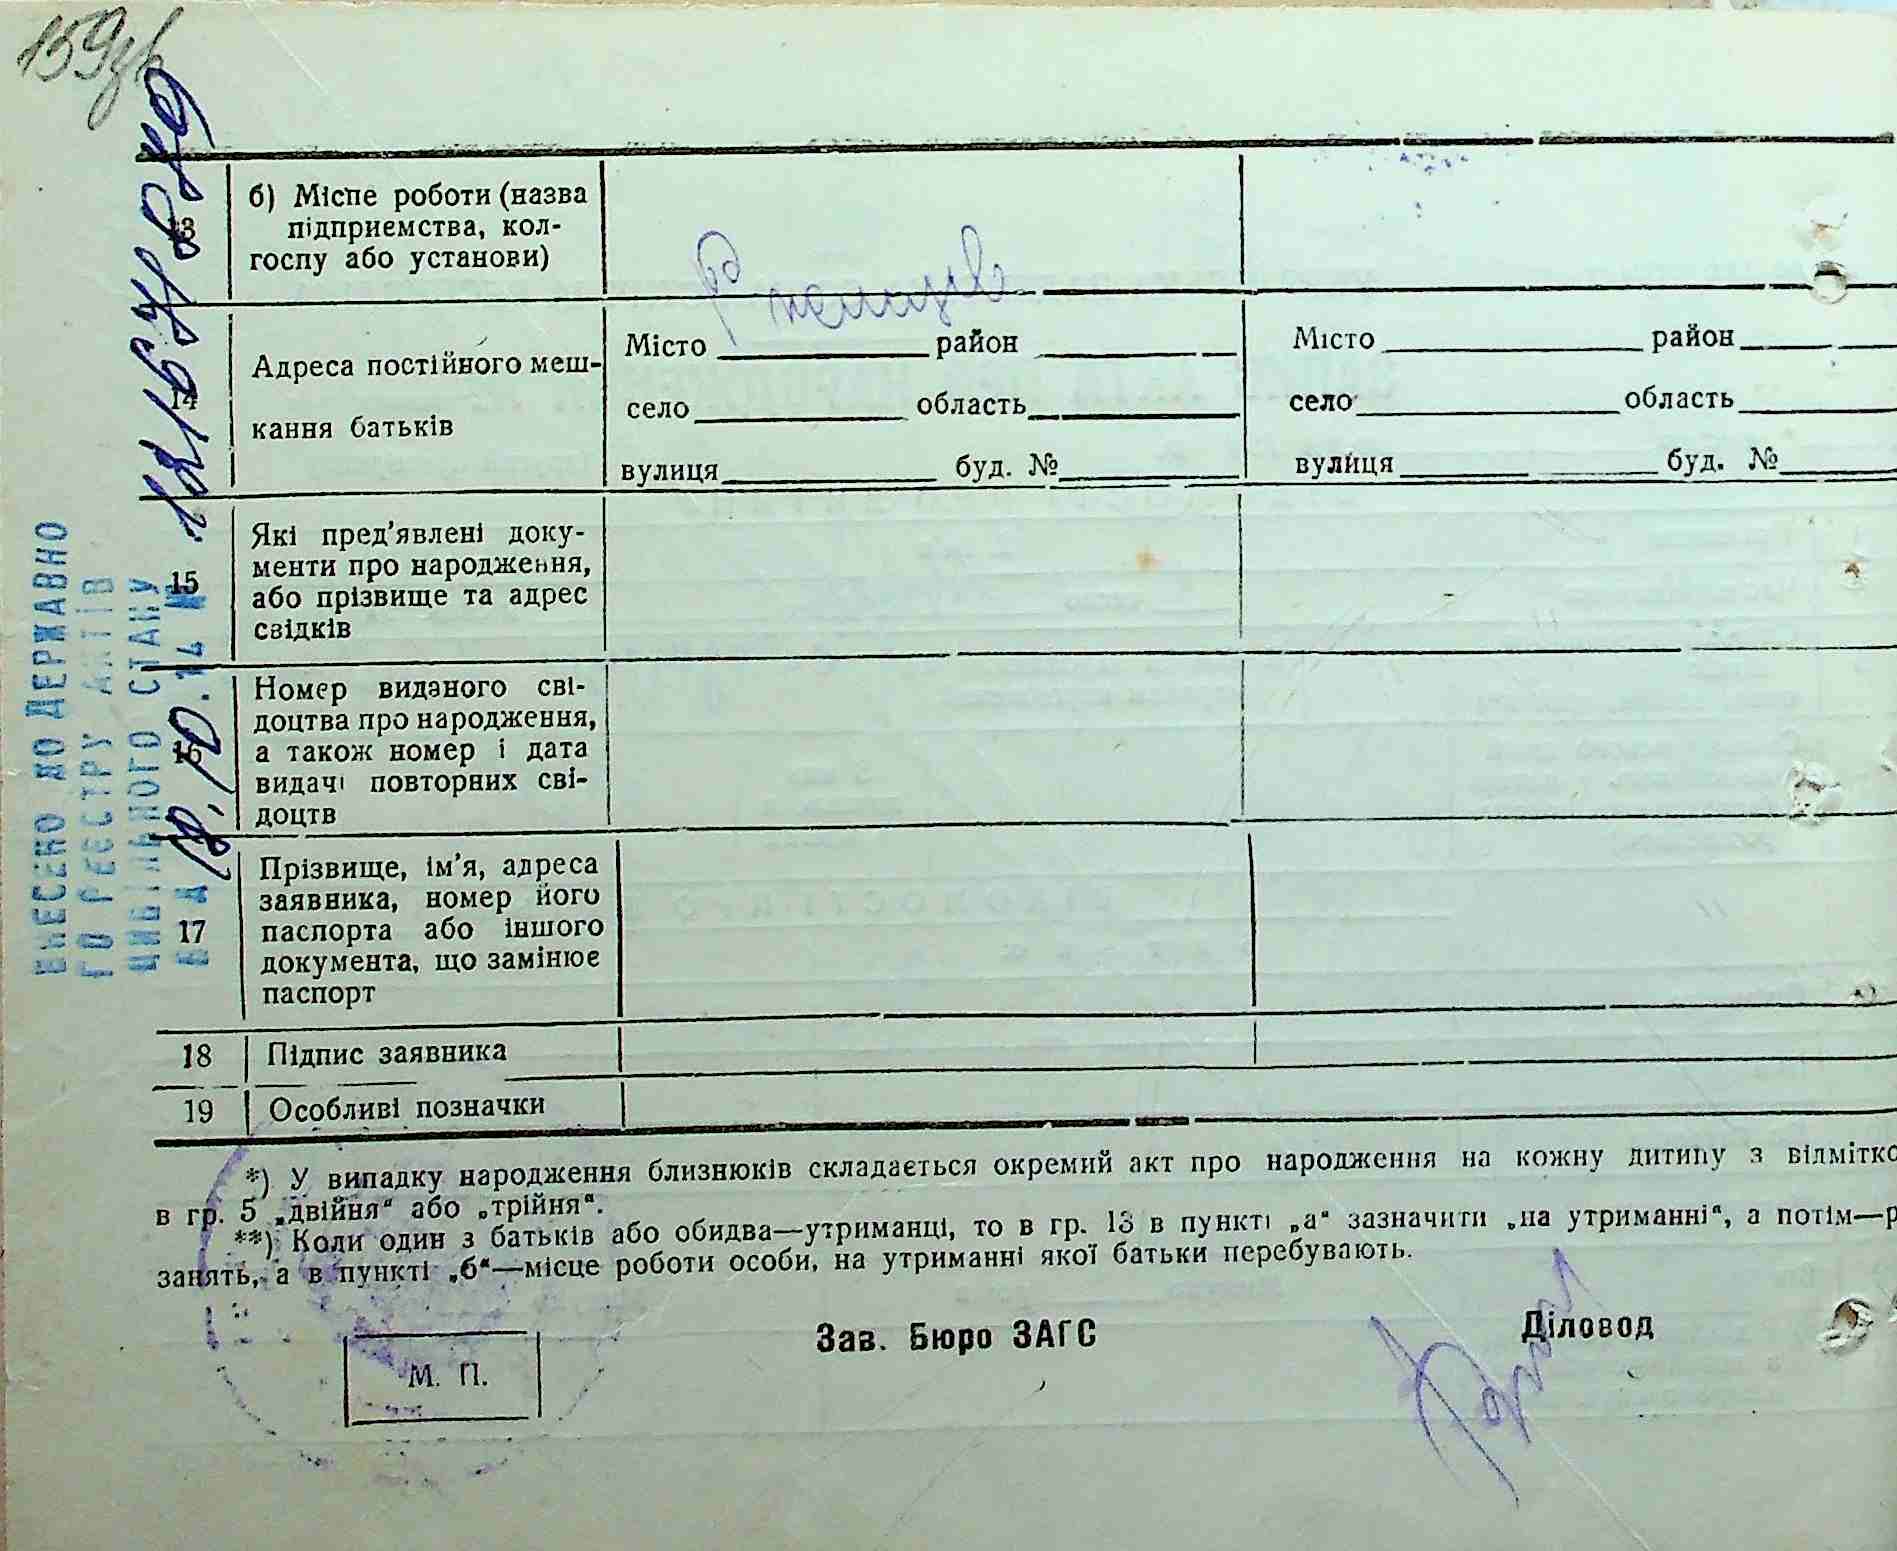 159зв
13
б) Місце роботи (назва
підприємства, кол-
госпу або установи)
14
Адреса постійного меш-
кання батьків
Місто район
село область
вулиця буд. №
Місто район
село область
вулиця буд. №
15
Які пред'явлені доку-
менти про народження,
або прізвище та адрес
свідків
16
Номер виданого сві-
доцтва про народження,
а також номер і дата
видачі повторних сві-
доцтв
17
Прізвище, ім'я, адреса
заявника, номер його
паспорта або іншого
документа, що замінює
паспорт
18 Підпис заявника
19 Особливі позначки
*) У випадку народження близнюків складається окремий акт про народження на кожну дитину з відмітко
в гр. 5 „двійня“ або „трійня“.
**) Коли один з батьків або обидва—утриманці, то в гр. 13 в пункті „а“ зазначити „на утриманні“, а потім—р
занять, а в пункті „б“—місце роботи особи, на утриманні якої батьки перебувають.
М. П.
Зав. Бюро ЗАГС
Діловод
ВНЕСЕНО ДО ДЕРЖАВНО
ГО РЕЄСТРУ АКТІВ
ЦИВІЛЬНОГО СТАНУ
ВІД 18.10.14 №